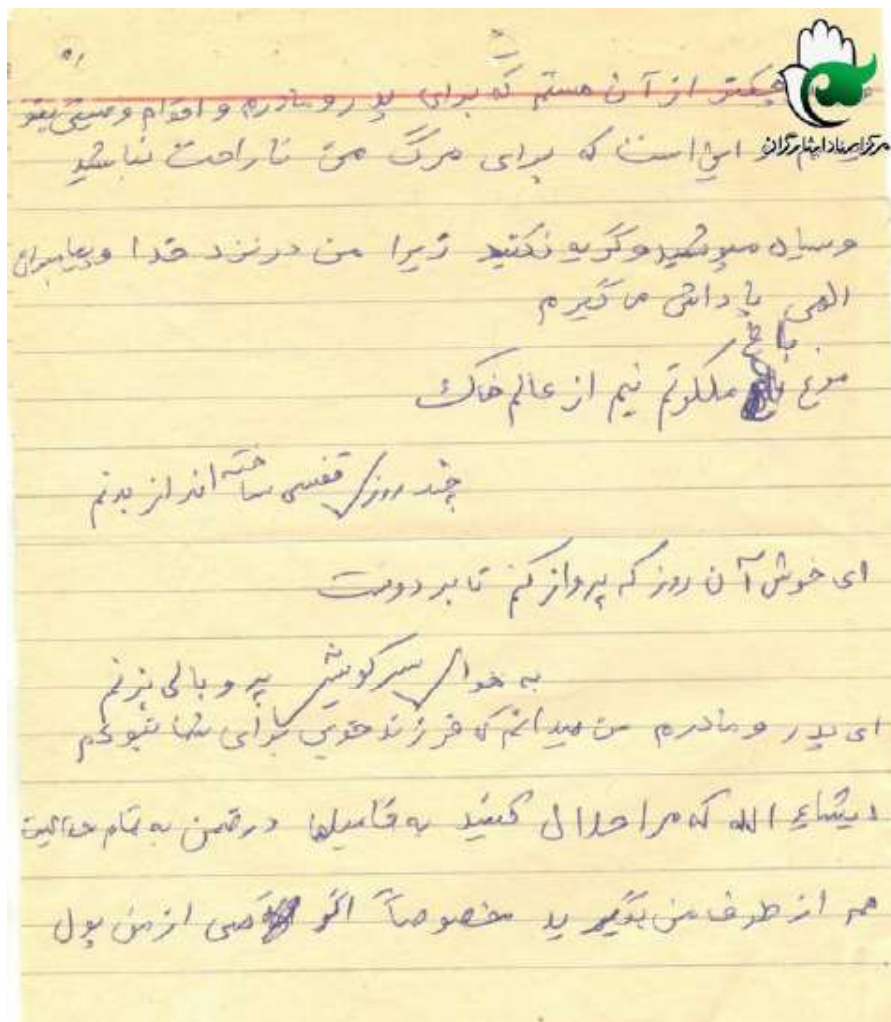 کوچکتر از آن هستم که برای پدر و مادرم و اقوام وصیتی بنو
این است که برای مرگ من ناراحت نباشید
مرکز اسناد ایثارگران
و سیاه مپوشید و گریه نکنید زیرا من در نزد خدا و پیامبران
الهی پاداش می گیرم
مرغ باغ ملکوتم نیم از عالم خاک
چند روزی قفسی ساخته اند از بدنم
ای خوش آن روز که پرواز کنم تا بر دوست
به هوای سر کویش پر و بالی بزنم
ای پدر و مادرم من میدانم که فرزند خوبی برای شما نبودم
انشاء الله که مرا حلال کنید به فامیلها در ضمن به تمام حلالیت
هم از طرف من بگیرید مخصوصاً اگر کسی از من پول